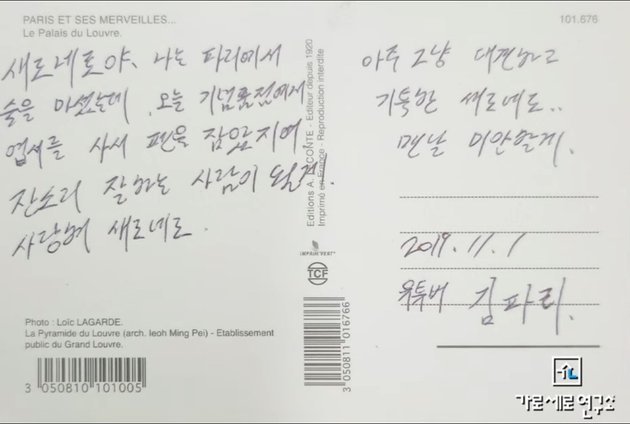 PARIS ET SES MERVEILLES...
Le Palais du Louvre.
101.676
새로네로야, 나는 파리에서
술을 마셨는데 오늘 기념품점에서
엽서를 사서 펜을 잡았지
잔소리 잘하는 사람이 될게
사랑해 새로네로.
아주 그냥 대견하고
기특한 새로네로..
맨날 미안할게.
2019. 11. 1
유투버 김파리.
Editions A. LECONTE - Editeur depuis 1920
Imprimé en France - Reproduction interdite
IMPRIM'VERT
TCF
Photo : Loïc LAGARDE.
La Pyramide du Louvre (arch. Ieoh Ming Pei) - Etablissement
public du Grand Louvre.
3 050810 101005
3 050811 016766
가로세로연구소